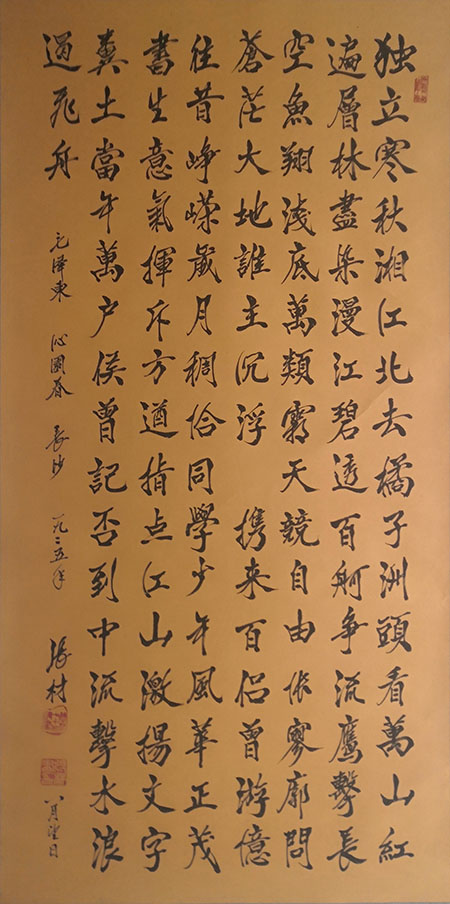 独立寒秋湘江北去橘子洲頭看萬山紅
遍層林盡染漫江碧透百舸争流鷹擊長
空魚翔浅底萬類霜天競自由怅寥廓問
蒼茫大地誰主沉浮 携来百侣曾游憶
往昔峥嵘歲月稠恰同學少年風華正茂
書生意氣揮斥方遒指点江山激揚文字
糞土當年萬户侯曾記否到中流擊水浪
遏飛舟
毛泽東 沁園春 長沙 一九二五年 張村 八月望日